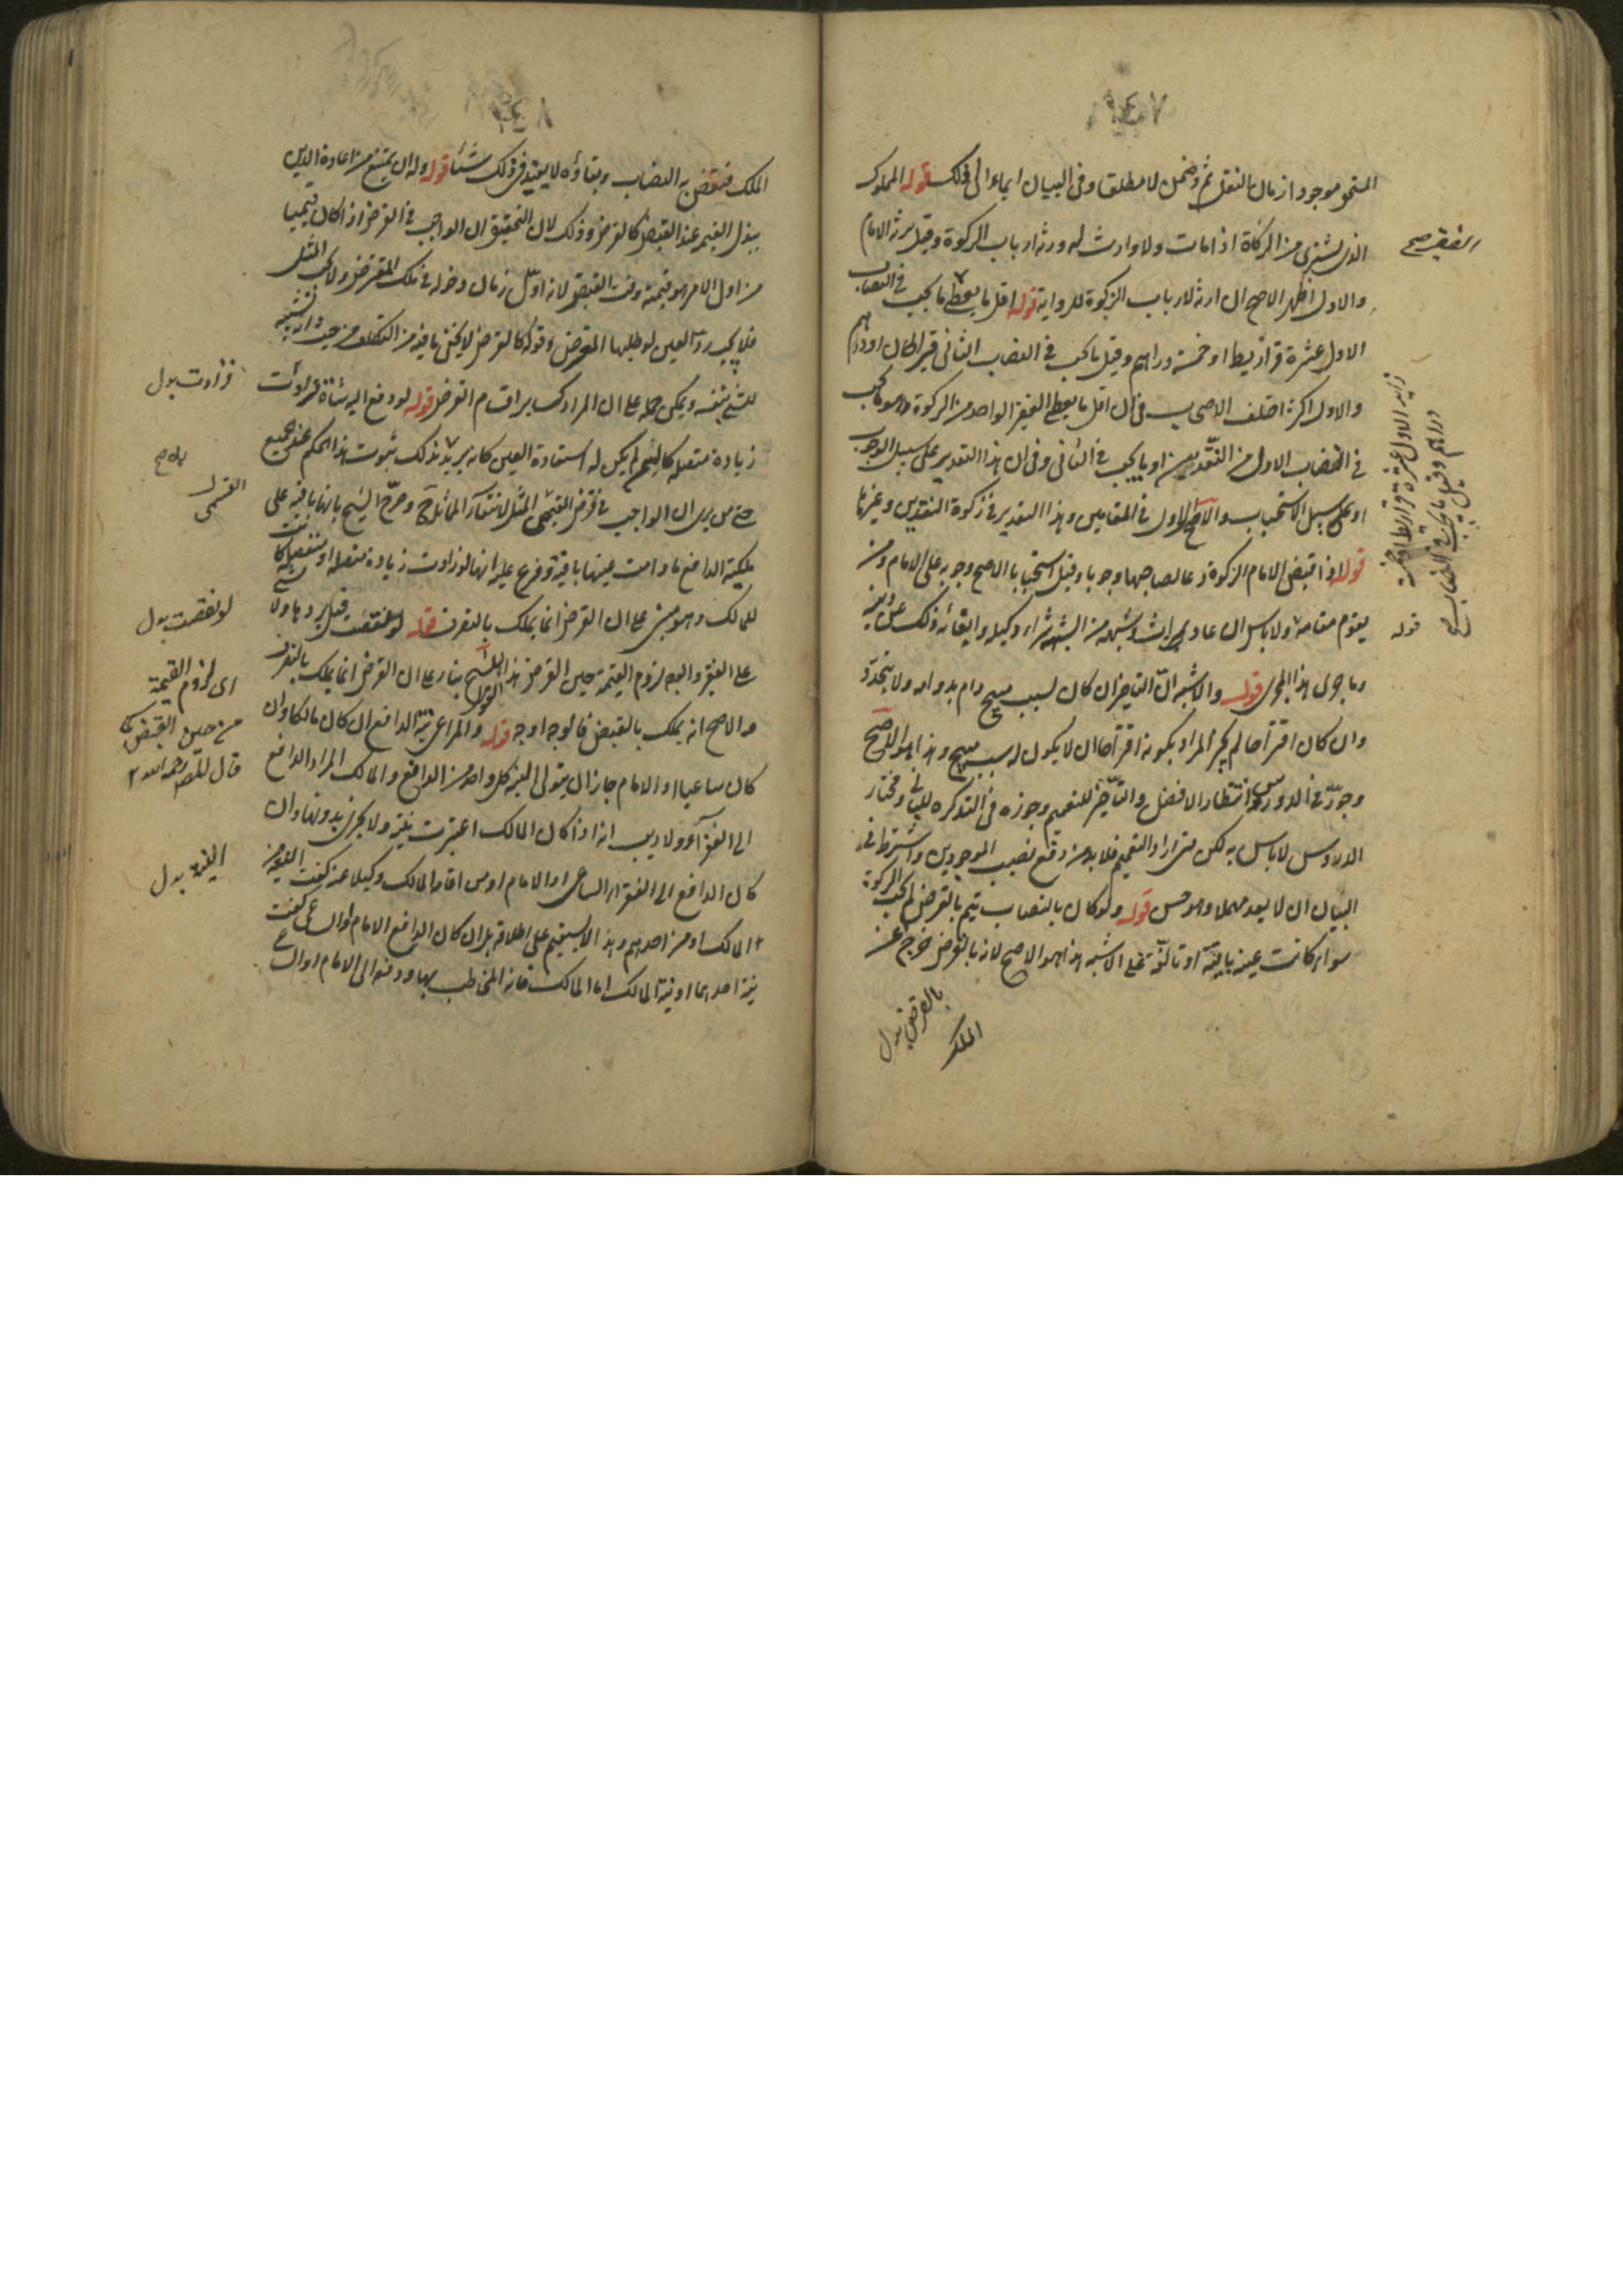 ١٤٧
المستحق موجودا زمان النقل ثم وضمن لا مطلقا وفى البيان ايماء الى ذلك قوله المملوك
الذى يشترى من الزكاة اذا مات ولا وارث له ورثه ارباب الزكوة وقيل يرثه الامام
والاول اظهر الاصح ان ارثه لارباب الزكوة للرواية قوله اقل ما يعطى ما يجب فى النصاب
الاول عشرة قراريط او خمسة دراهم وقيل ما يجب فى النصاب الثانى قيراطان او درهم
والاول اكثر اختلف الاصحاب فى ان اقل ما يعطى الفقير الواحد من الزكوة هو ما يجب
فى النصاب الاول من النقدين او ما يجب فى الثانى وفى ان هذا التقدير على سبيل الوجوب
او على سبيل الاستحباب والاصح الاول فى المقامين وهذا التقدير فى زكوة النقدين وغيرها
قوله اذا قبض الامام الزكوة دعا لصاحبها وجوبا وقيل استحبابا الاصح وجوبه على الامام ومن
يقوم مقامه ولا باس ان عاد بميراث وشبهه من الشبه شراء وكيله وايفائه ذلك عن دينه
وما جرى هذا المجرى قوله والاشبه ان التاخير ان كان لسبب مبيح دام بدوامه ولا يتحدد
وان كان اقتراحا لم يجز المراد بكونه اقتراحا ان لا يكون له سبب مبيح وهذا هو الاصح
وجوز فى الدروس انتظار الافضل والتاخير للتعميم وجوزه فى التذكره للبيان ومختار
الدروس لا باس به لكن متى اراد التعميم فلا بد من دفع نصيب الموجودين واشترط فى
البيان ان لا يعد مهملا وهو حسن قوله ولو كان بالنصاب يتم بالقرض لم تجب الزكوة
سواء كانت عينه باقية او تالفة على الاشبه هذا هو الاصح لانه بالقرض خرج عن
الملك
بالقرض بدل
الفقير صح
زاد الاول عشرة قراريط او خمسة
دراهم وقيل ما يجب فى النصاب صح
قوله
١٤٨
الملك فنقض به النصاب وبقاؤه لا يفيد فى ذلك شيئا قوله وله ان يمتنع من اعادة العين
ببذل القيمة عند القبض كالقرض وذلك لان التحقيق ان الواجب فى القرض اذا كان قيميا
من اول الامر هو قيمته وقت القبض لانه اول زمان دخوله فى ملك المقترض ولا يجب المثل
فلا يجب رد العين لو طلبها المقرض وقوله كالقرض لا يخفى ما فيه من التكلف من حيث انه تشبيه
للشئ بنفسه ويمكن حمله على ان المراد كسائر اقسام القرض قوله لو دفع اليه شاة فزادت
زيادة متصلة كالسمن لم يكن له استعادة العين كانه يريد بذلك ثبوت هذا الحكم عند جميع
حتى من يرى ان الواجب فى قرض القيمى المثل لانتفاء المماثلة وصرح الشيخ بانها باقية على
ملكية الدافع ما دامت عينها باقية وفرع عليه انها لو زادت زيادة متصلة او منفصلة كانت
للمالك وهو مبنى على ان القرض انما يملك بالتصرف قوله لو نقصت قيل يردها ولا شئ
على الفقير والوجه لزوم القيمة حين القرض هذا قول الشيخ بناء على ان القرض انما يملك بالتصرف
والاصح انه يملك بالقبض فالوجه اوجه قوله والمراعى نية الدافع ان كان مالكا وان
كان ساعيا او الامام جاز ان يتولى النية كل واحد من الدافع والمالك المراد الدافع
الى الفقراء ولا ريب انه اذا كان المالك اعتبرت نيته ولا يجزى بدونها وان
كان الدافع الى الفقراء الساعى او الامام او من اقامه المالك وكيلا عنه كفت النية من
المالك او من احدهم وهذا لا يستقيم على اطلاقه بل ان كان الدافع الامام او الساعى كفت
نية احدهما او نية المالك اما المالك فانه المخاطب بها ودفعها الى الامام او الساعى
فزادت بدل
القيمى
لو نقصت بدل
اى لزوم القيمة
من حين القبض كما
قال المص رحمه الله
النية بدل